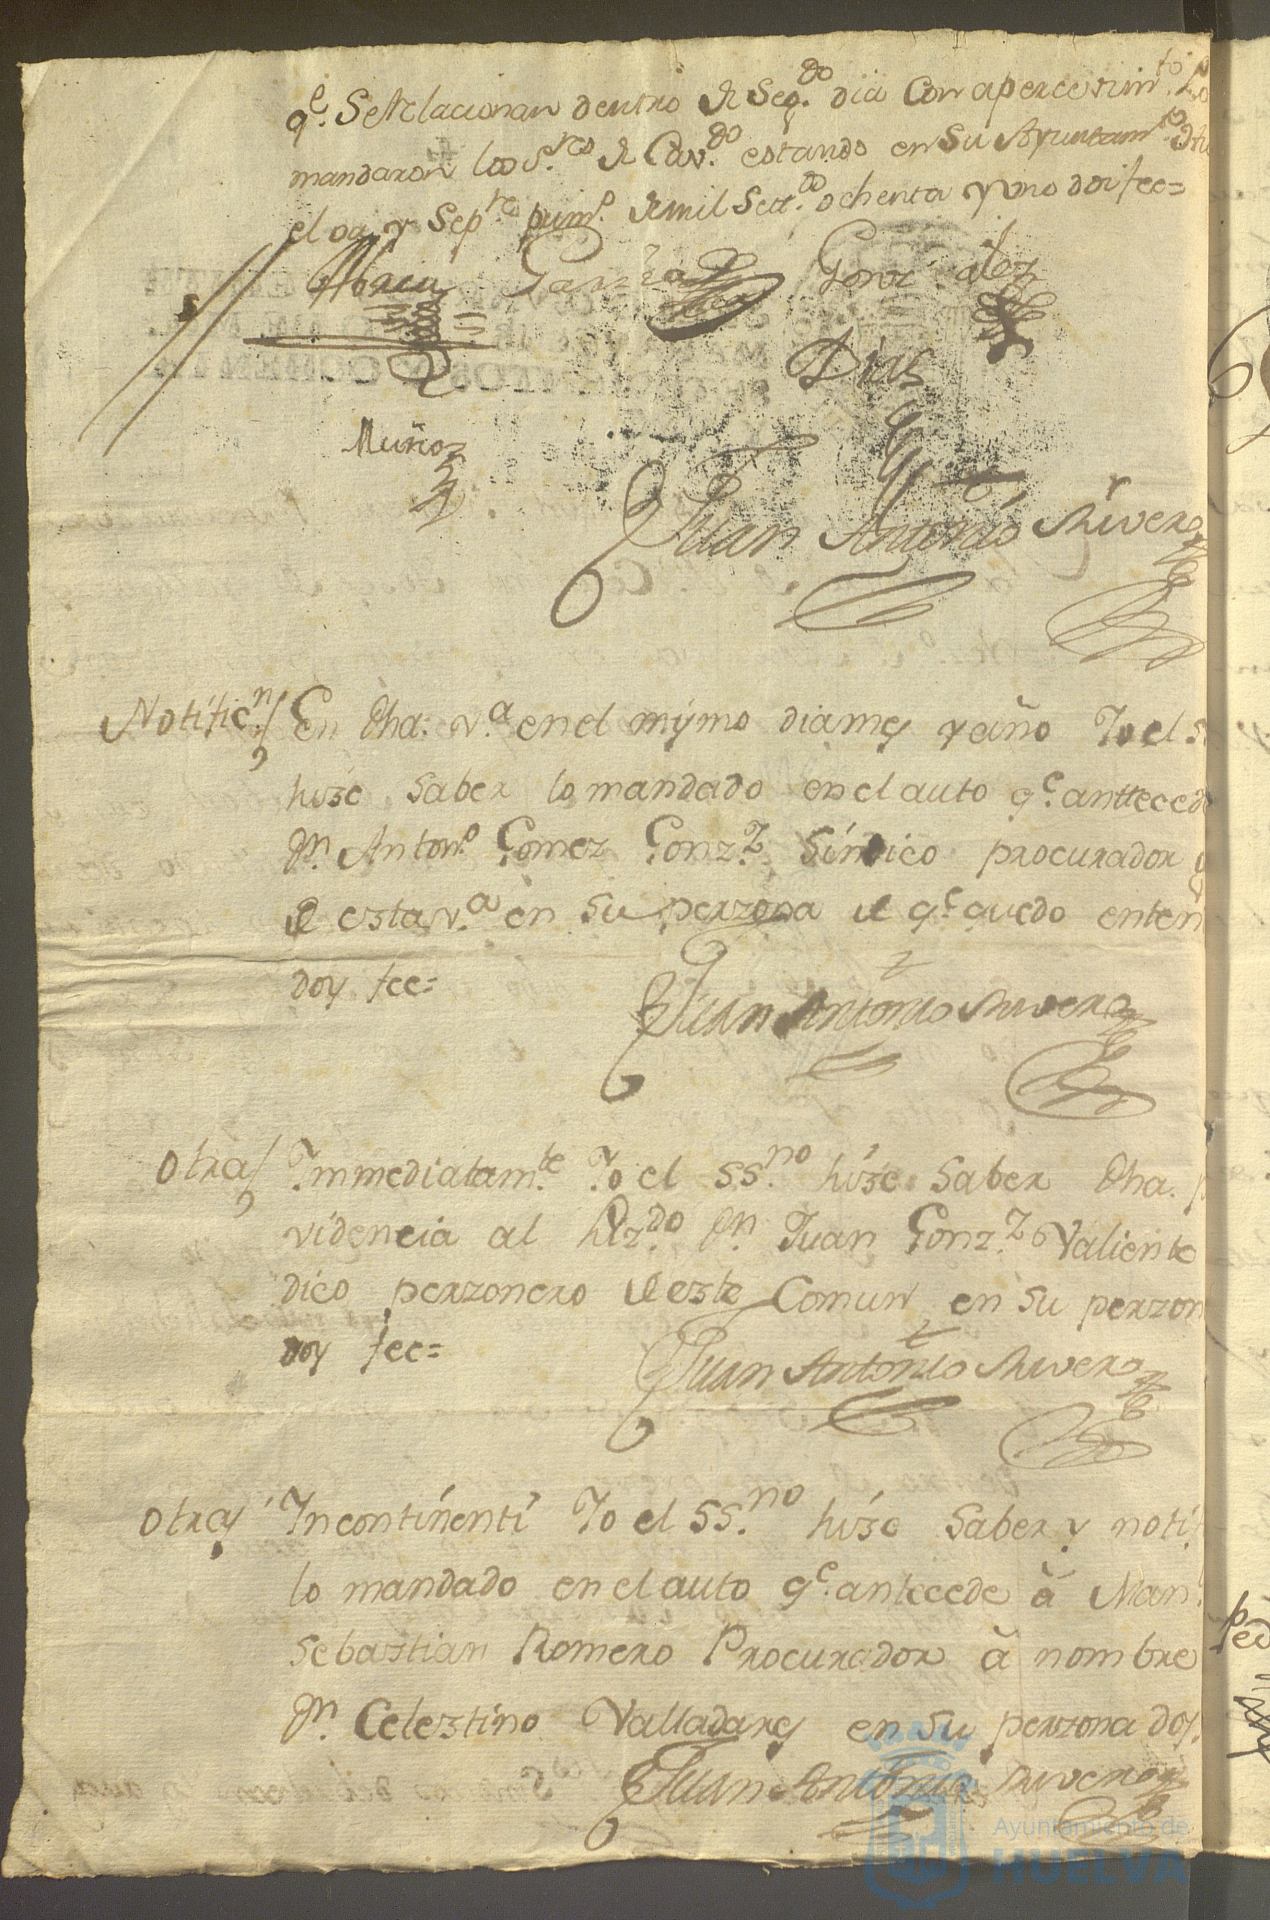 q.e Se Relacionan dentro de Seg.do dia Con apercevim.to Lo
mandaron los S.res de Cav.do estando en Su Ayuntam.to
el oq y Sep.re prim.o de mil Sett.s ochenta y uno doi fee=
Abreu Garzia Gonzalez
Dias
Muñoz
Juan Antonio Rivero
Notific.n En Dha. v.a en el mymo dia mes y año Yo el
hize Saber lo mandado en el auto q.e anttecede
Dn. Anton.o Gomez Gonz.z Síndico procurador
de esta v.a en Su perzona de q.e quedo enten
doy fee=
Juan Antonio Rivero
Otra Immediatam.te Yo el SS.no híze Saber Dha.
videncia al Lizdo Dn. Juan Gonz.z Valiente
dico perzonero de este Comun en Su perzon
doy fee=
Juan Antonio Rivero
Otra Incontinenti Yo el SS.no híze Saber y notí
lo mandado en el auto q.e antecede à Man.
Sebastian Romero Procurador à nombre
Dn. Celestino Valladares en Su perzona doy
Juan Antonio Rivero
Ayuntamiento de
HUELVA